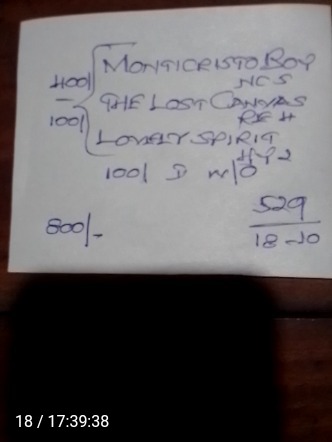 400/ MONTICRISTO BOY
NCS
100/ THE LOST CANVAS
REH
LOVELY SPIRIT
HY2
100/ D M/O
800/-
529
18-10
18 / 17:39:38